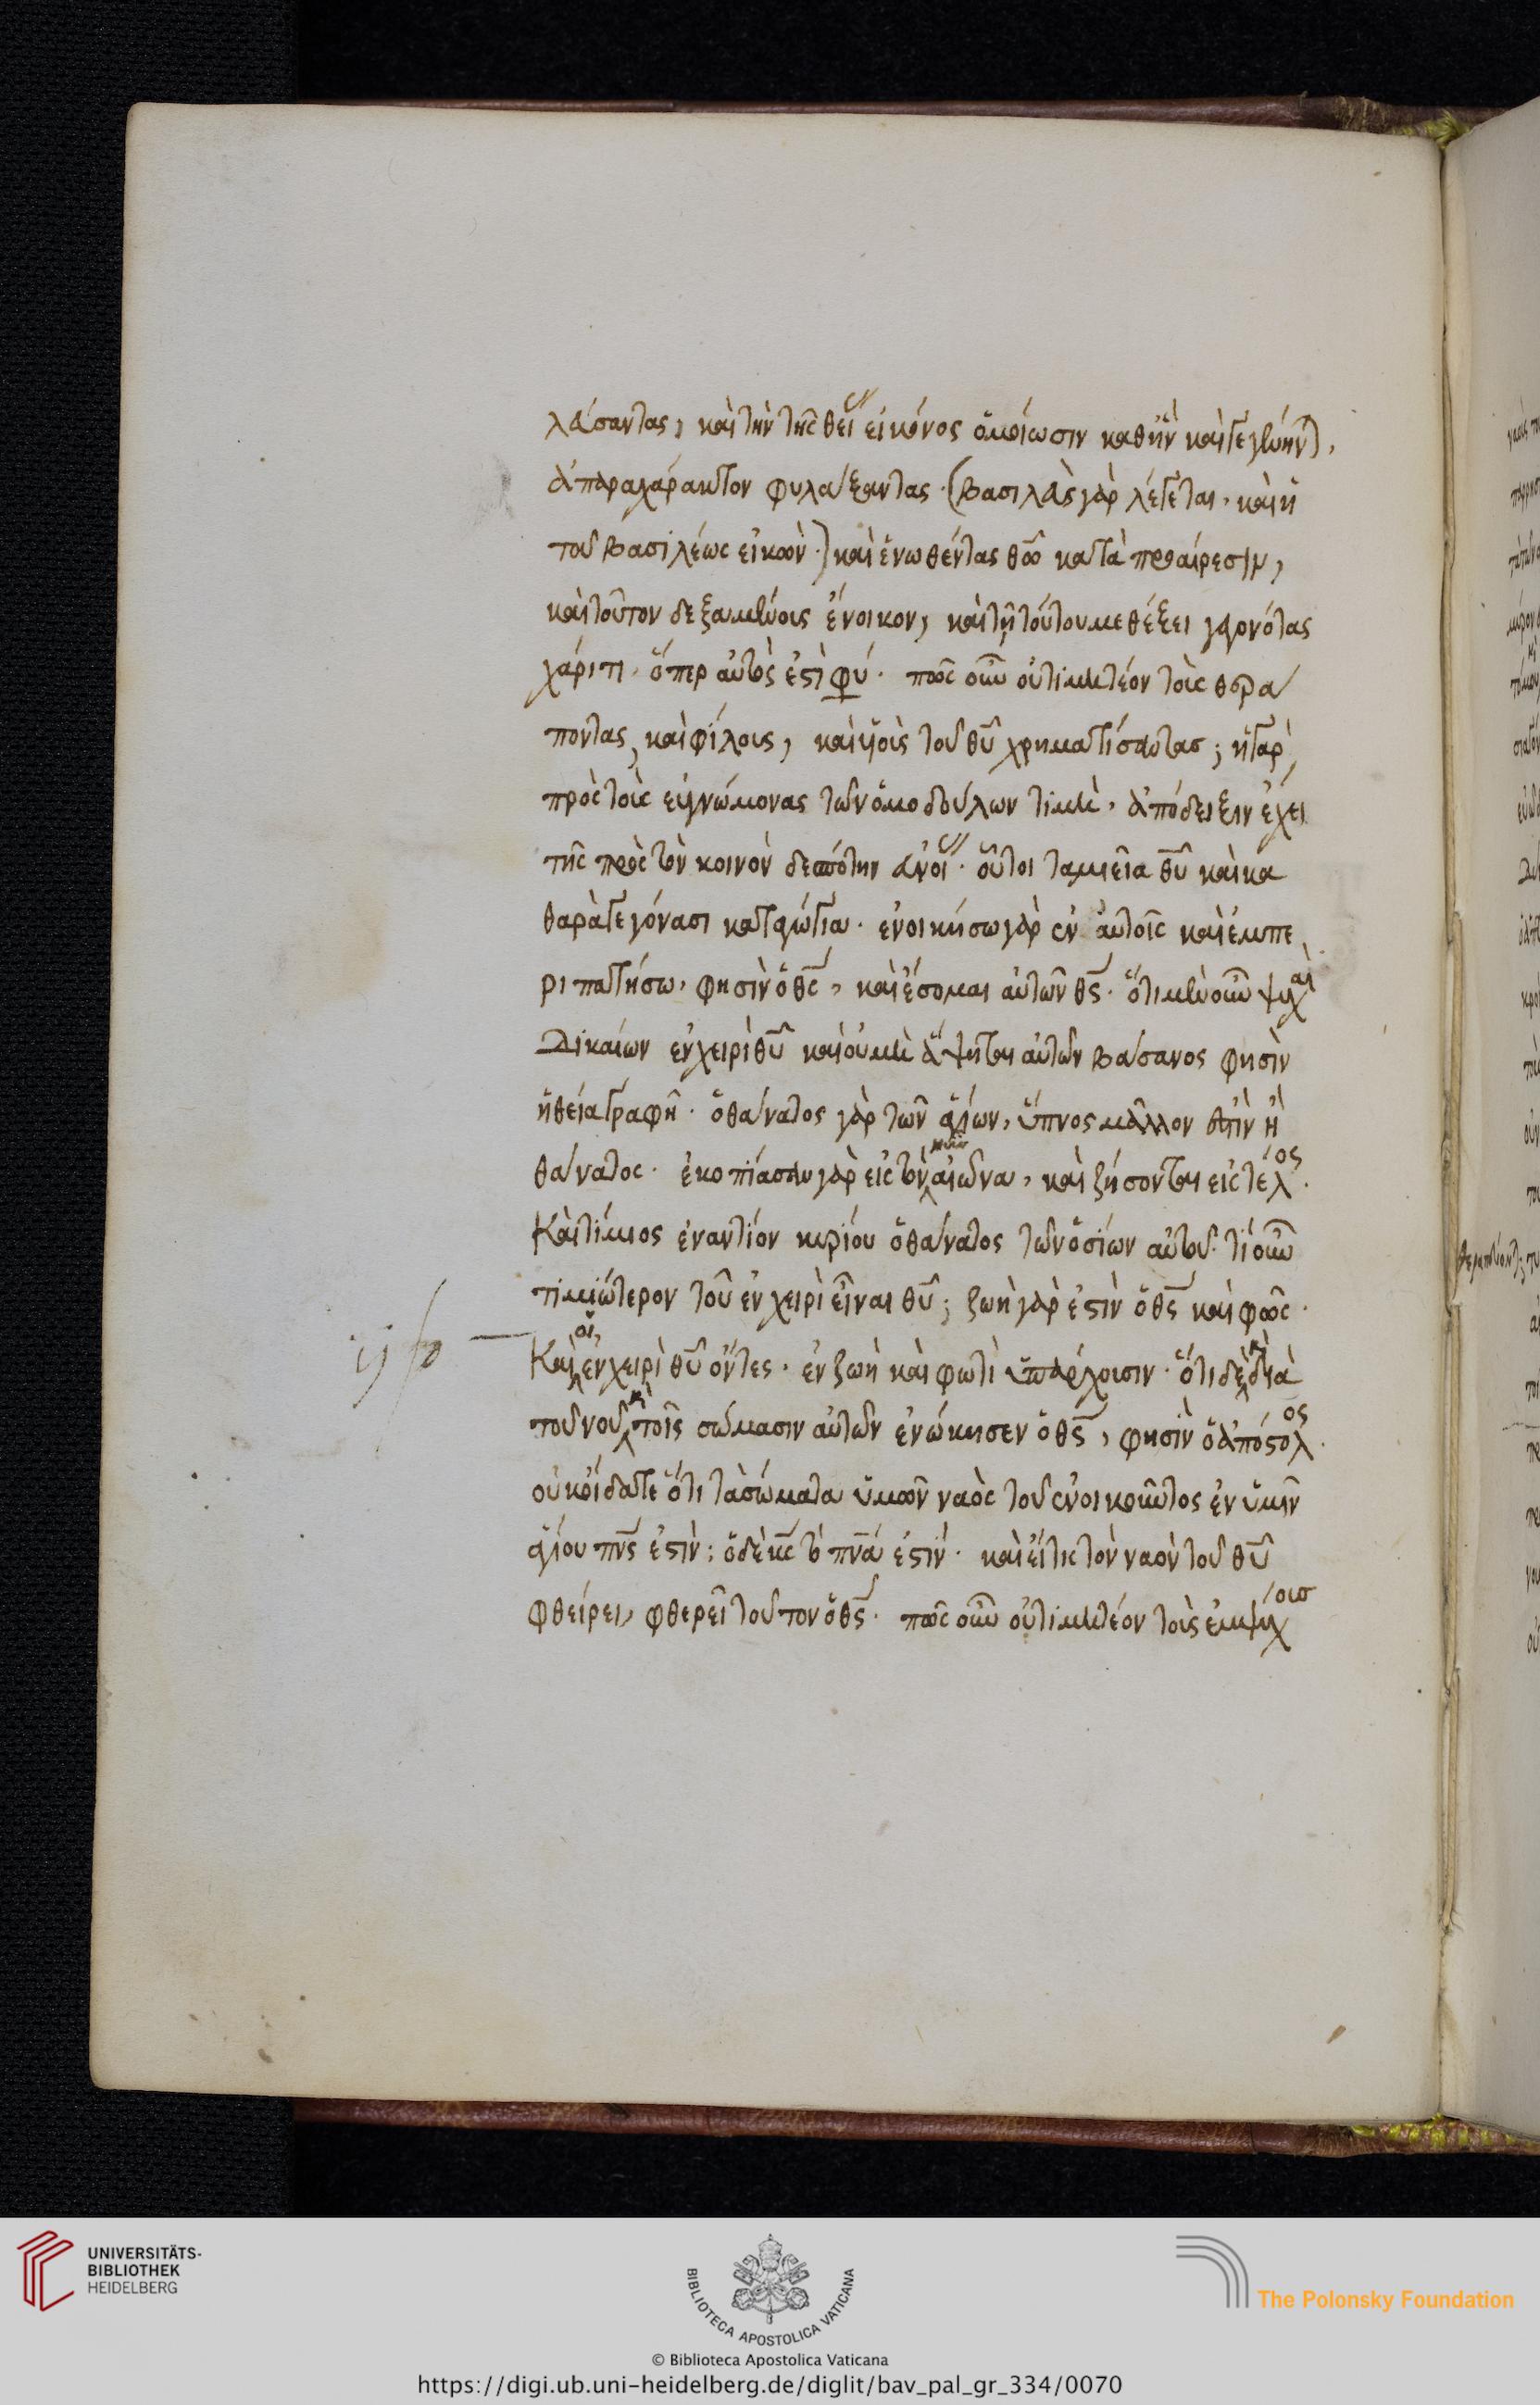 λάσαντας, καὶ τὴν τῆς θεί εἰκόνος ὁμοίωσιν καθ ἣν καὶ γεγένην),
ἀπαραχάρακτον φυλάξαντας. (βασιλεὺς γὰρ λέγεται, καὶ ἡ
τοῦ βασιλέως εἰκὼν.) καὶ ἑνωθέντας θῶ κατὰ προαίρεσιν,
καὶ τοῦτον δεξαμένους ἔνοικον, καὶ τῇ τούτου μεθέξει γεγονότας
χάριτι, ὅπερ αὐτὸς ἐστὶ φύ. πῶς οὖν οὐ τιμητέον τοὺς θερά
ποντας, καὶ φίλους, καὶ υἱοὺς τοῦ θῦ χρηματίσαντας; ἡ γὰρ
πρὸς τοὺς εὐγνώμονας τῶν ὁμοδούλων τιμὴ, ἀπόδειξιν ἔχει
τῆς πρὸς τὸν κοινὸν δεσπότην εὐνοί. οὗτοι ταμιεῖα θῦ καὶ κα
θαρὰ γεγόνασι καταγώγια. ἐνοικήσω γὰρ ἐν αὐτοῖς καὶ ἐμπε
ριπατήσω, φησὶν ὁ θς, καὶ ἔσομαι αὐτῶν θς. ὅτι μὲν οὖν ψυχαὶ
Δικαίων ἐν χειρὶ θῦ καὶ οὐ μὴ ἅψηται αὐτῶν βάσανος φησὶν
ἡ θεία γραφή. ὁ θάνατος γὰρ τῶν ἁγίων, ὕπνος μᾶλλον ἐστὶν ἢ
θάνατος. ἐκοπίασαν γὰρ εἰς τὸν αἰῶνα, καὶ ζήσονται εἰς τέλος.
Καὶ τίμιος ἐναντίον κυρίου ὁ θάνατος τῶν ὁσίων αὐτοῦ. τί οὖν
τιμιώτερον τοῦ ἐν χειρὶ εἶναι θῦ; ζωὴ γὰρ ἐστὶν ὁ θς καὶ φῶς.
Καὶ οἱ ἐν χειρὶ θῦ ὄντες, ἐν ζωῇ καὶ φωτὶ ὑπάρχουσιν. ὅτι δὲ κ διὰ
τοῦ νοῦ κ τοῖς σώμασιν αὐτῶν ἐνώκησεν ὁ θς, φησὶν ὁ ἀπόστολος.
οὐκ οἴδατε ὅτι τὰ σώματα ὑμῶν ναὸς τοῦ ἐνοικοῦντος ἐν ὑμῖν
ἁγίου πνς ἐστὶν; ὁ δὲ κς τὸ πνά ἐστίν. καὶ εἴ τις τὸν ναὸν τοῦ θῦ
φθείρει, φθερεῖ τοῦτον ὁ θς. πῶς οὖν οὐ τιμητέον τοὺς ἐμψύχους
UNIVERSITÄTS-
BIBLIOTHEK
HEIDELBERG
BIBLIOTECA APOSTOLICA VATICANA
The Polonsky Foundation
© Biblioteca Apostolica Vaticana
https://digi.ub.uni-heidelberg.de/diglit/bav_pal_gr_334/0070